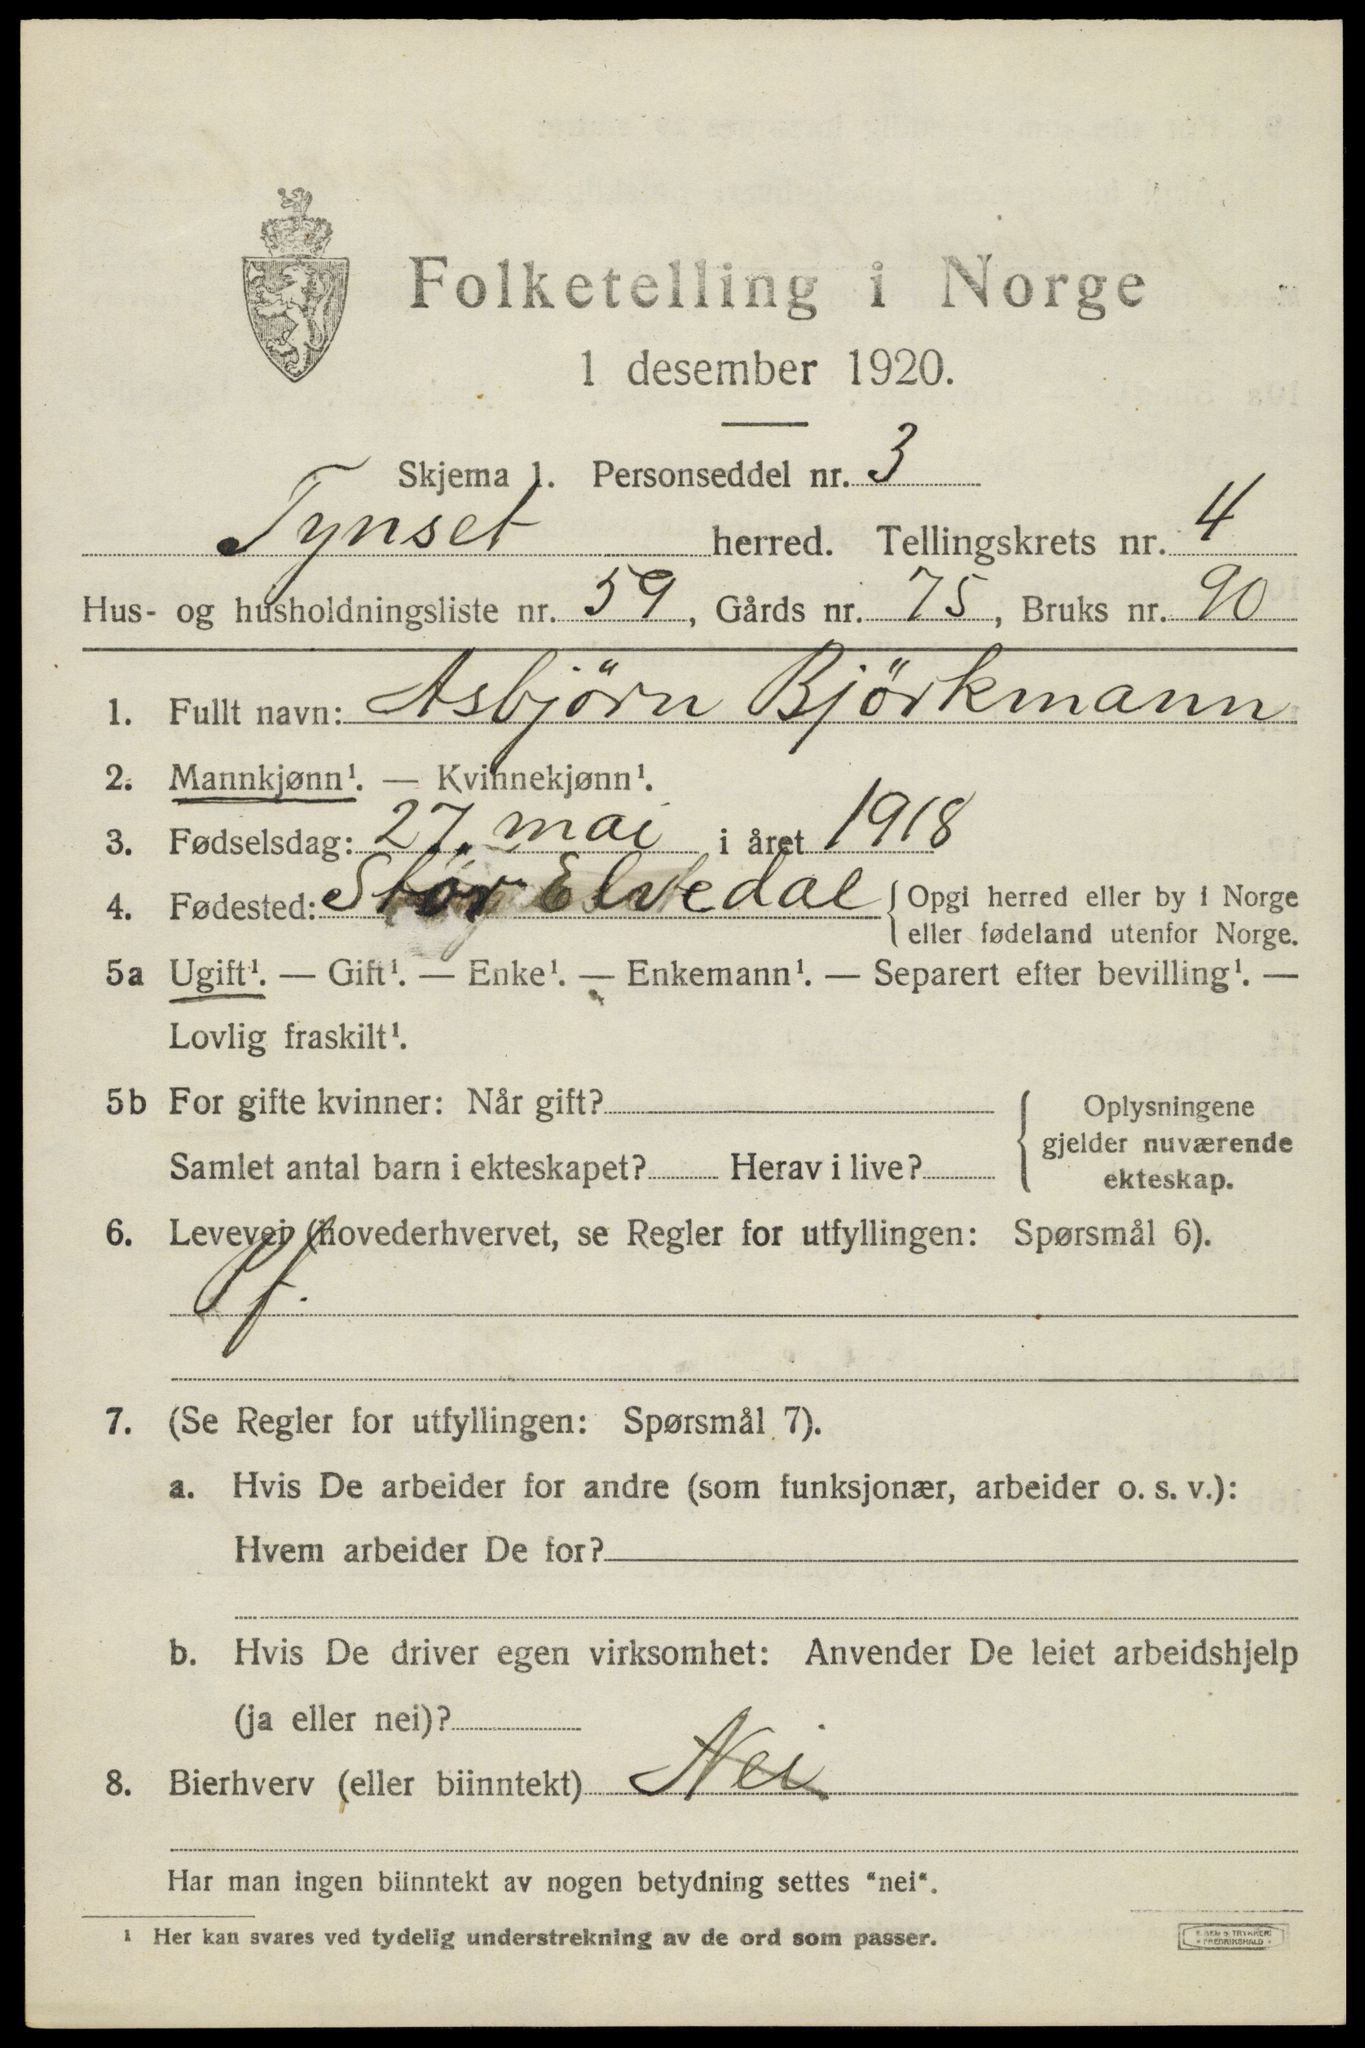 Folketelling i Norge
1 desember 1920.
Skjema 1. Personseddel nr. 3
Tynset herred. Tellingskrets nr. 4
Hus- og husholdningsliste nr. 59, Gårds nr. 75, Bruks nr. 90
1. Fullt navn: Asbjörn Björkmann
2. Mannkjønn¹. — Kvinnekjønn¹.
3. Fødselsdag: 27. mai i året 1918
4. Fødested: Stor Elvedal { Opgi herred eller by i Norge
eller fødeland utenfor Norge.
5a Ugift¹. — Gift¹. — Enke¹. — Enkemann¹. — Separert efter bevilling¹. —
Lovlig fraskilt¹.
5b For gifte kvinner: Når gift? { Oplysningene
gjelder nuværende
Samlet antal barn i ekteskapet? Herav i live?
ekteskap.
6. Levevei (hovederhvervet, se Regler for utfyllingen: Spørsmål 6).
7. (Se Regler for utfyllingen: Spørsmål 7).
a. Hvis De arbeider for andre (som funksjonær, arbeider o. s. v.):
Hvem arbeider De for?
b. Hvis De driver egen virksomhet: Anvender De leiet arbeidshjelp
(ja eller nei)?
8. Bierhverv (eller biinntekt) Nei
Har man ingen biinntekt av nogen betydning settes "nei".
¹ Her kan svares ved tydelig understrekning av de ord som passer.